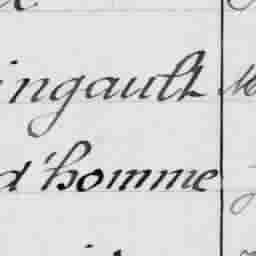 ingault
d'homme